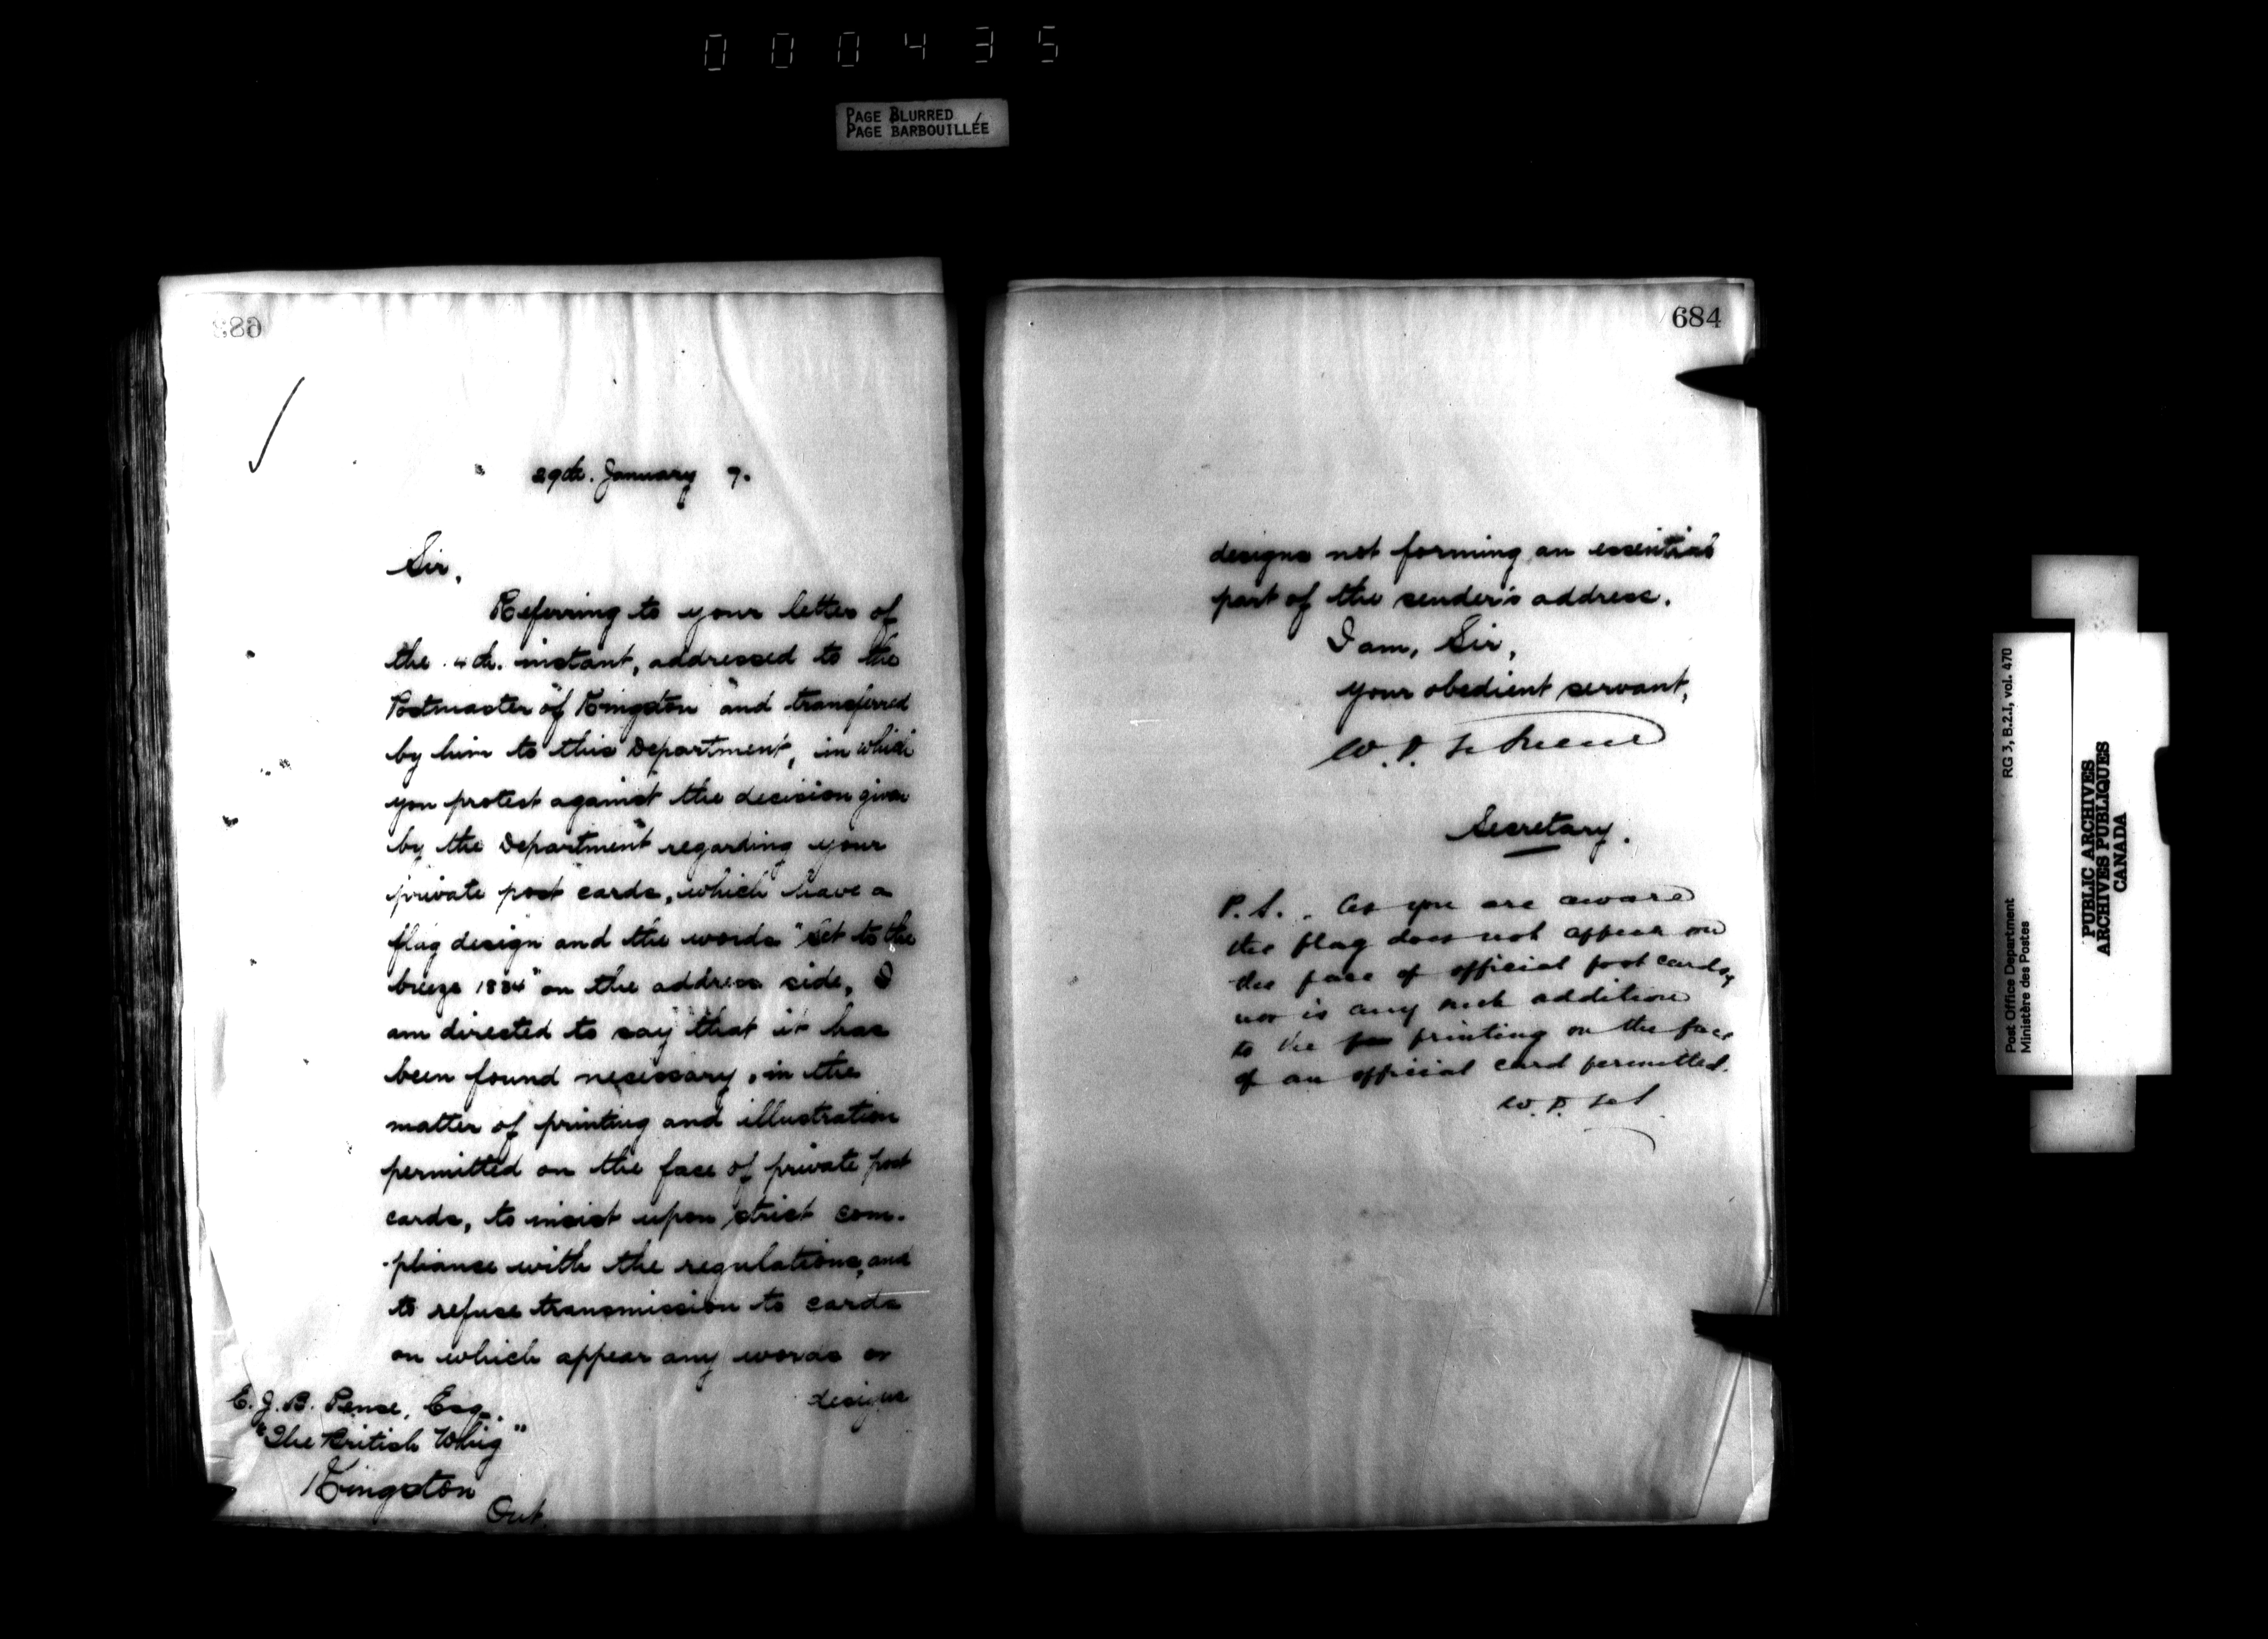 000435
PAGE BLURRED
PAGE BARBOUILLÉE
683
29th. January 7.
Sir,
Referring to your letter of
the 4th. instant, addressed to the
Postmaster of Kingston and transferred
by him to this Department, in which
you protest against the decision given
by the Department regarding your
private post cards, which have a
flag design and the words "set to the
breeze 1834" on the address side, I
am directed to say that it has
been found necessary, in the
matter of printing and illustration
permitted on the face of private post
cards, to insist upon strict com-
-pliance with the regulations, and
to refuse transmission to cards
on which appear any words or
designs
E. J. B. Pense, Esq.
"The British Whig"
Kingston
Ont.
684
designs not forming an essential
part of the sender's address.
I am, Sir,
your obedient servant,
W. D. LeSueur
Secretary.
P.S. As you are aware
the flag does not appear on
the face of official post cards,
nor is any such addition
to the printing on the face
of an official card permitted.
W. D. LeS
Post Office Department
Ministère des Postes
RG 3, B.2.I, vol. 470
PUBLIC ARCHIVES
ARCHIVES PUBLIQUES
CANADA